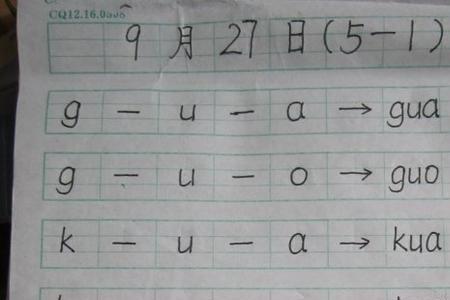 CQ12.16.0508
9月27日(5-1)
g — u — a → gua
g — u — o → guo
k — u — a → kua